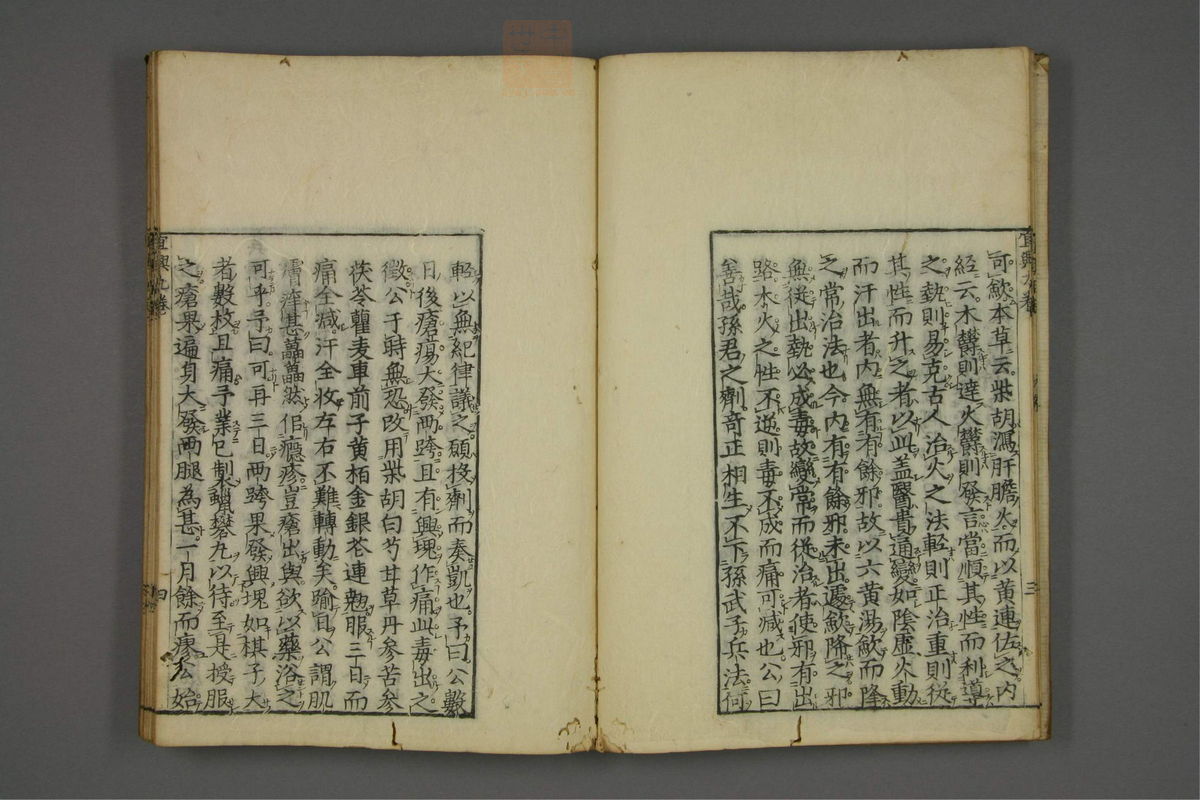 可歟本草云柴胡瀉肝膽火而以黄連佐之内
經云木欝則達火欝則發言當順其性而利導
之勢則易克古人治火之法輕則正治重則從
其性而升之者以此盖醫貴通變如陰虚火動
而汗出者内無有餘邪故以六黄湯歛而降
之常治法也今内有有餘邪未出遽歛降之邪
無從出勢必成毒故變常而從治者使邪有出
路木火之性不逆則毒不成而痛可减也公曰
善哉孫君之劑竒正相生不下孫武子兵法何
輕以無紀律議之願投劑而奏凱也予曰公數
日後瘡瘍大發兩跨且有興塊作痛此毒出之
徴公于時無恐改用柴胡白芍甘草丹參苦參
茯苓瞿麦車前子黄栢金銀花連翹服三日而
痛全减汗全收左右不難轉動矣踰日公謂肌
膚痒甚藟藟然似癮疹豈瘡出與欲以藥浴之
可乎予曰可再三日兩跨果發興塊如棋子大
者數枚且痛予業已製蠟礬丸以待至是授服
之瘡果遍身大發兩腿為甚一月餘而瘳公始
宜興九卷
三
四